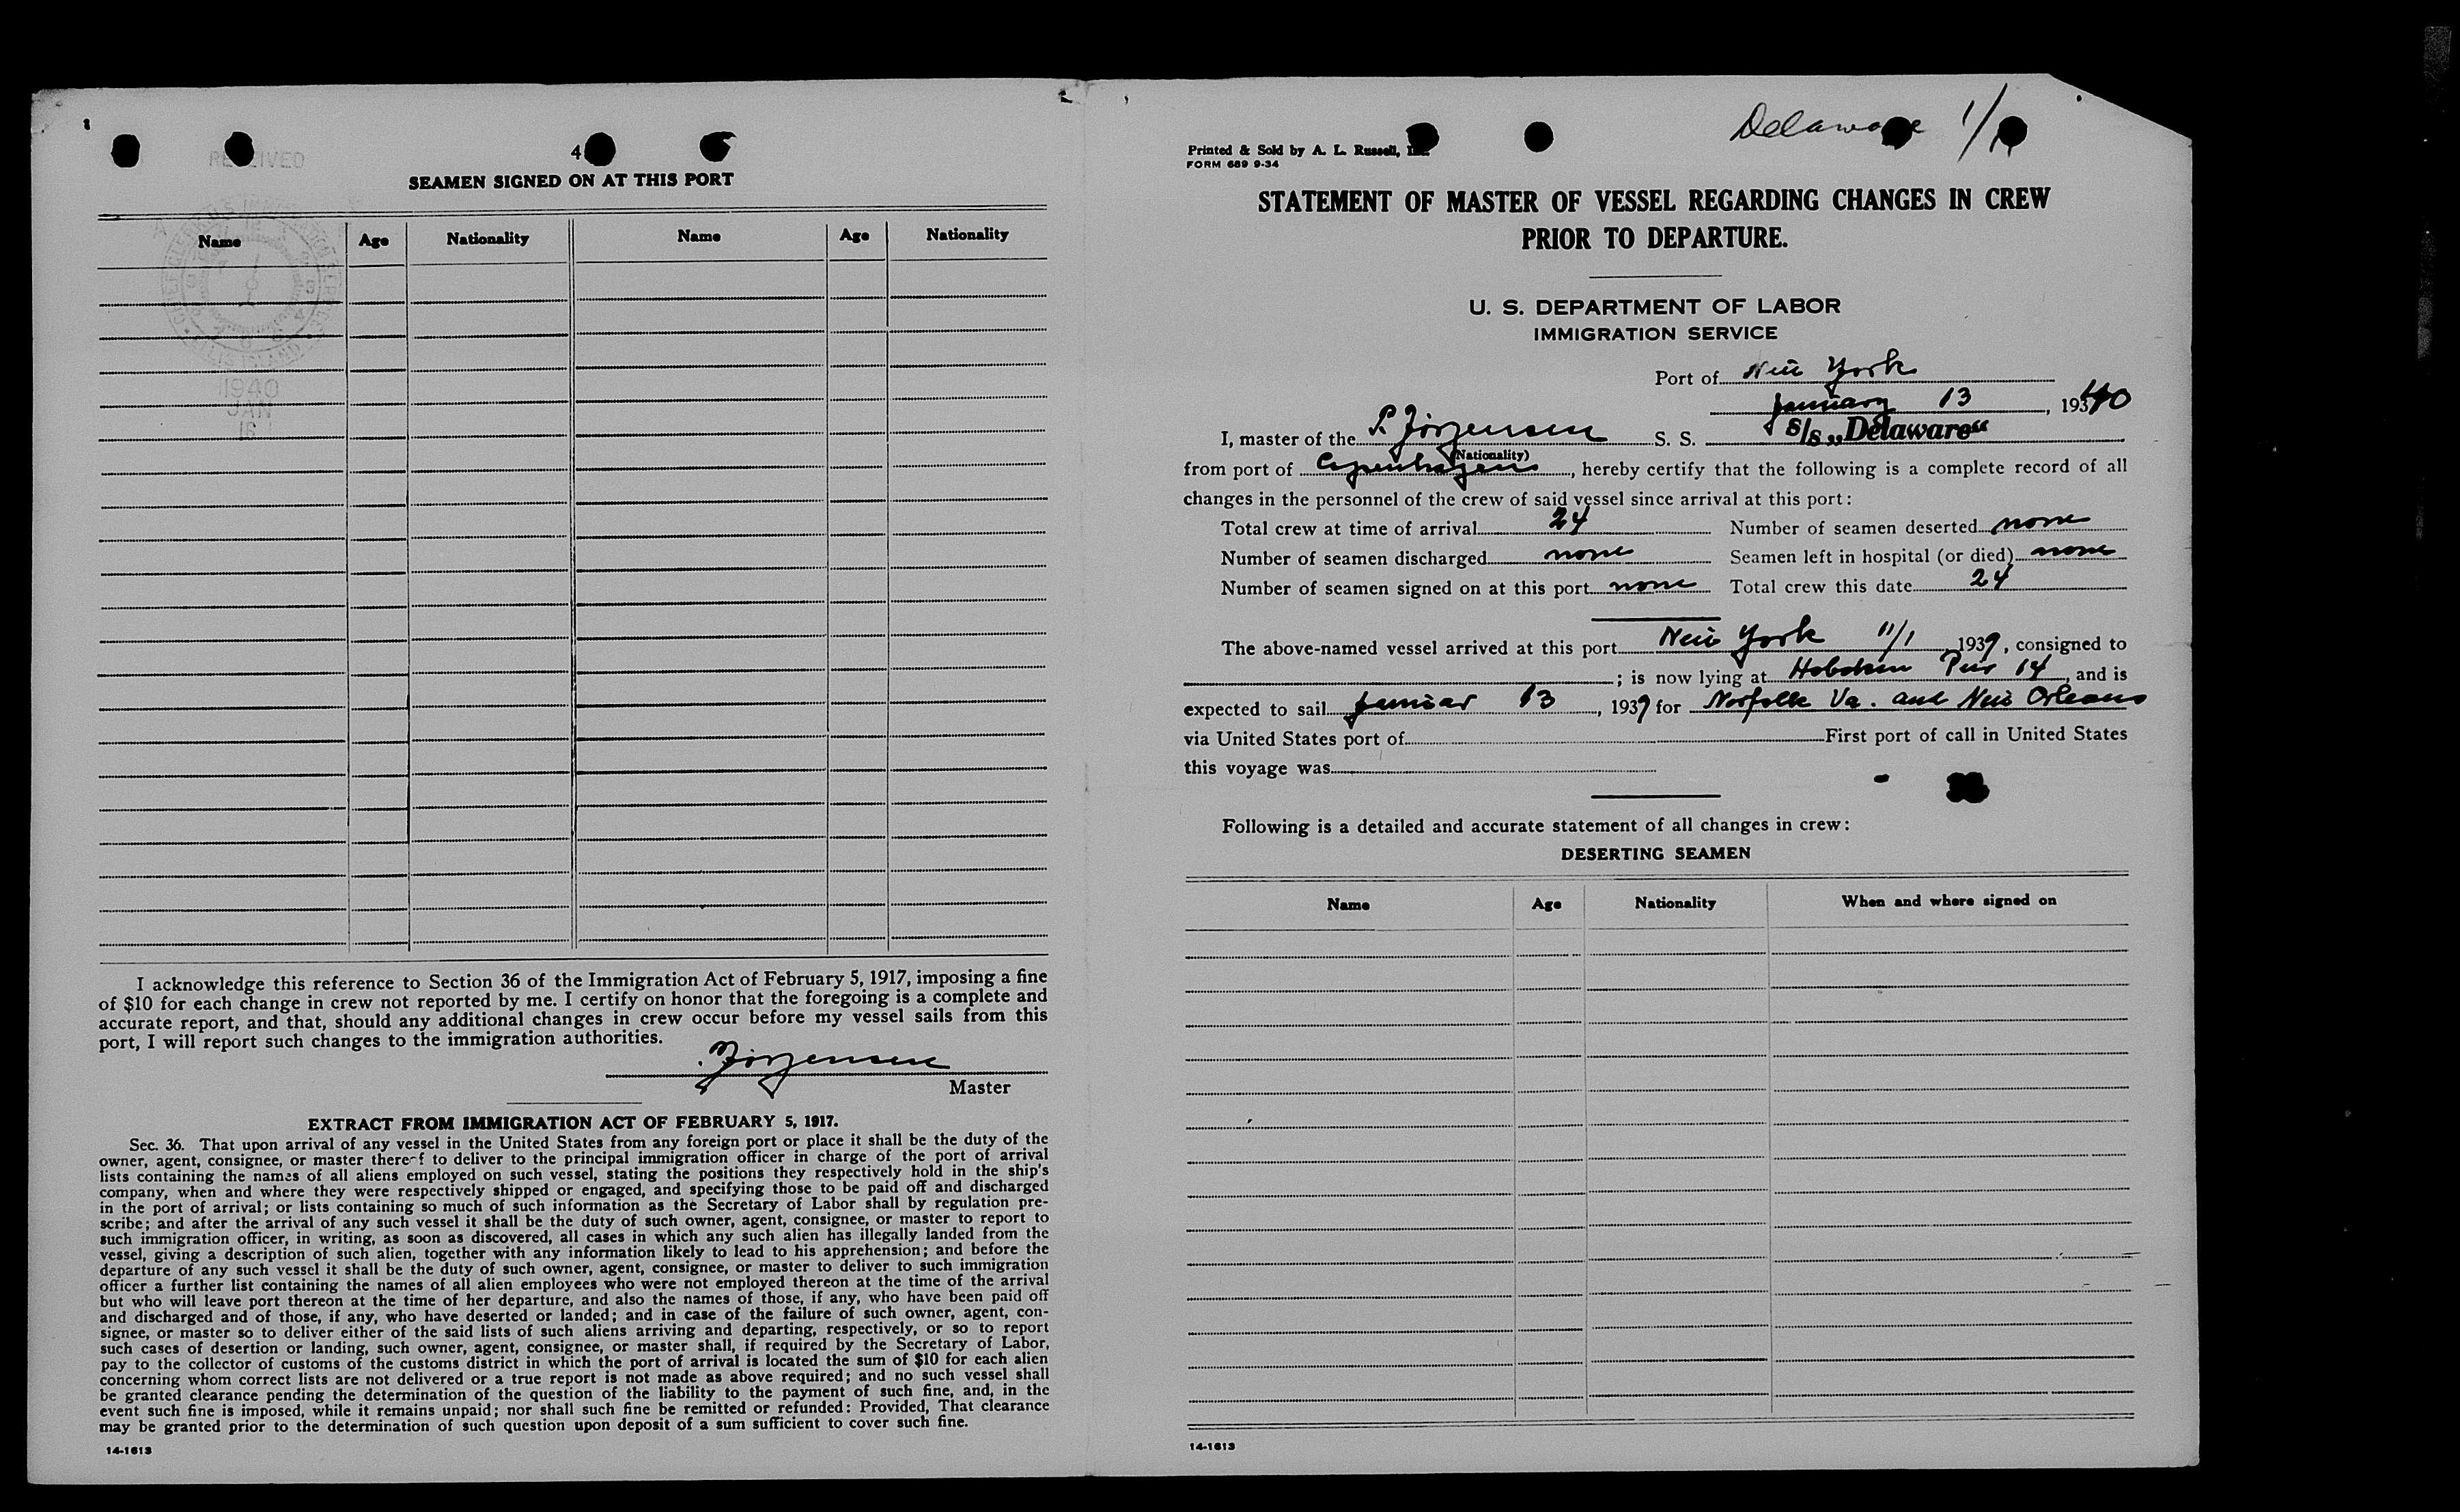 4
RECEIVED
SEAMEN SIGNED ON AT THIS PORT
Name Age Nationality Name Age Nationality
1940
JAN
16
I acknowledge this reference to Section 36 of the Immigration Act of February 5, 1917, imposing a fine
of $10 for each change in crew not reported by me. I certify on honor that the foregoing is a complete and
accurate report, and that, should any additional changes in crew occur before my vessel sails from this
port, I will report such changes to the immigration authorities.
Jörgensen
Master
EXTRACT FROM IMMIGRATION ACT OF FEBRUARY 5, 1917.
Sec. 36. That upon arrival of any vessel in the United States from any foreign port or place it shall be the duty of the
owner, agent, consignee, or master thereof to deliver to the principal immigration officer in charge of the port of arrival
lists containing the names of all aliens employed on such vessel, stating the positions they respectively hold in the ship's
company, when and where they were respectively shipped or engaged, and specifying those to be paid off and discharged
in the port of arrival; or lists containing so much of such information as the Secretary of Labor shall by regulation pre-
scribe; and after the arrival of any such vessel it shall be the duty of such owner, agent, consignee, or master to report to
such immigration officer, in writing, as soon as discovered, all cases in which any such alien has illegally landed from the
vessel, giving a description of such alien, together with any information likely to lead to his apprehension; and before the
departure of any such vessel it shall be the duty of such owner, agent, consignee, or master to deliver to such immigration
officer a further list containing the names of all alien employees who were not employed thereon at the time of the arrival
but who will leave port thereon at the time of her departure, and also the names of those, if any, who have been paid off
and discharged and of those, if any, who have deserted or landed; and in case of the failure of such owner, agent, con-
signee, or master so to deliver either of the said lists of such aliens arriving and departing, respectively, or so to report
such cases of desertion or landing, such owner, agent, consignee, or master shall, if required by the Secretary of Labor,
pay to the collector of customs of the customs district in which the port of arrival is located the sum of $10 for each alien
concerning whom correct lists are not delivered or a true report is not made as above required; and no such vessel shall
be granted clearance pending the determination of the question of the liability to the payment of such fine, and, in the
event such fine is imposed, while it remains unpaid; nor shall such fine be remitted or refunded: Provided, That clearance
may be granted prior to the determination of such question upon deposit of a sum sufficient to cover such fine.
14-1613
Delaware 1/
Printed & Sold by A. L. Russell, Inc.
FORM 689 9-34
STATEMENT OF MASTER OF VESSEL REGARDING CHANGES IN CREW
PRIOR TO DEPARTURE.
U. S. DEPARTMENT OF LABOR
IMMIGRATION SERVICE
Port of New York
January 13, 19340
I, master of the P. Jörgensen S. S. S/S „Delaware“
(Nationality)
from port of Copenhagen, hereby certify that the following is a complete record of all
changes in the personnel of the crew of said vessel since arrival at this port:
Total crew at time of arrival 24 Number of seamen deserted none
Number of seamen discharged none Seamen left in hospital (or died) none
Number of seamen signed on at this port none Total crew this date 24
The above-named vessel arrived at this port New York 11/1 1939, consigned to
; is now lying at Hoboken Pier 14, and is
expected to sail Januar 13, 1939 for Norfolk Va. and New Orleans
via United States port of First port of call in United States
this voyage was
Following is a detailed and accurate statement of all changes in crew:
DESERTING SEAMEN
Name Age Nationality When and where signed on
14-1613